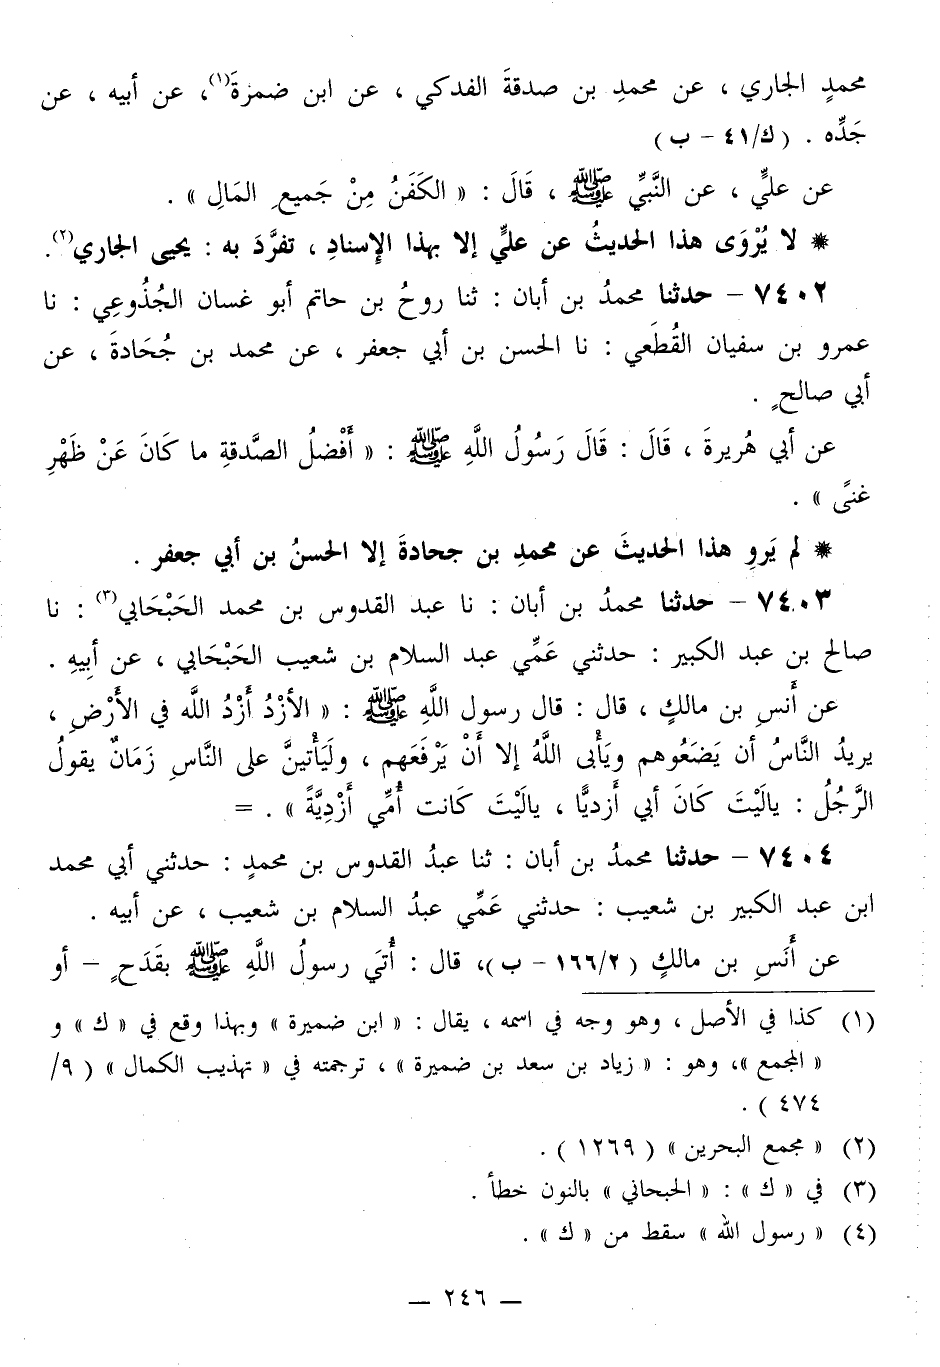 محمدٍ الجاري ، عن محمدِ بن صدقةَ الفدكي ، عن ابن ضمرةَ(١)، عن أبيه ، عن
جَدِّه . ( ك/٤١ – ب )
عن عليٍّ ، عن النَّبيِّ ﷺ ، قَالَ : « الكَفَنُ مِنْ جَميعِ المَالِ » .
* لا يُرْوَى هذا الحديثُ عن عليٍّ إلا بهذا الإِسنادِ ، تفرَّدَ به : يحيى الجاري(٢).
٧٤٠٢ – حدثنا محمدُ بن أبان : ثنا روحُ بن حاتم أبو غسان الجُذُوعِي : نا
عمرو بن سفيان القُطَعي : نا الحسن بن أبي جعفر ، عن محمد بن جُحَادةَ ، عن
أبي صالحٍ .
عن أبي هُريرةَ ، قَالَ : قَالَ رَسُولُ اللَّهِ ﷺ : « أَفْضلُ الصَّدقةِ ما كَانَ عَنْ ظَهْرِ
غنىً » .
* لم يَروِ هذا الحديثَ عن محمدِ بن جحادةَ إلا الحسنُ بن أبي جعفر .
٧٤٠٣ – حدثنا محمدُ بن أبان : نا عبد القدوس بن محمد الحَبْحَابي(٣) : نا
صالح بن عبد الكبير : حدثني عَمِّي عبد السلام بن شعيب الحَبْحَابي ، عن أبِيهِ .
عن أَنسِ بن مالكٍ ، قال : قال رسول اللَّهِ ﷺ : « الأَزْدُ أَزْدُ اللَّه في الأَرْضِ ،
يريدُ النَّاسُ أن يَضَعُوهم ويَأْبى اللَّهُ إلا أَنْ يَرْفَعَهم ، ولَيَأْتينَّ على النَّاسِ زَمَانٌ يقولُ
الرَّجُلُ : يالَيْتَ كَانَ أبي أَزديًّا ، يالَيْتَ كَانت أُمِّي أَزْدِيَّةً » . =
٧٤٠٤ – حدثنا محمدُ بن أبان : ثنا عبدُ القدوس بن محمدٍ : حدثني أبي محمد
ابن عبد الكبير بن شعيب : حدثني عَمِّي عبدُ السلام بن شعيب ، عن أبيه .
عن أَنَسِ بن مالكٍ ( ١٦٦/٢ – ب )، قال : أُتيَ رسولُ اللَّهِ ﷺ بقَدَحٍ – أو
(١) كذا في الأصل ، وهو وجه في اسمه ، يقال : « ابن ضميرة » وبهذا وقع في « ك » و
« المجمع »، وهو : « زياد بن سعد بن ضميرة » ، ترجمته في « تهذيب الكمال » ( ٩/
٤٧٤ ) .
(٢) « مجمع البحرين » ( ١٢٦٩ ) .
(٣) في « ك » : « الحبحاني » بالنون خطأ .
(٤) « رسول الله » سقط من « ك » .
— ٢٤٦ —